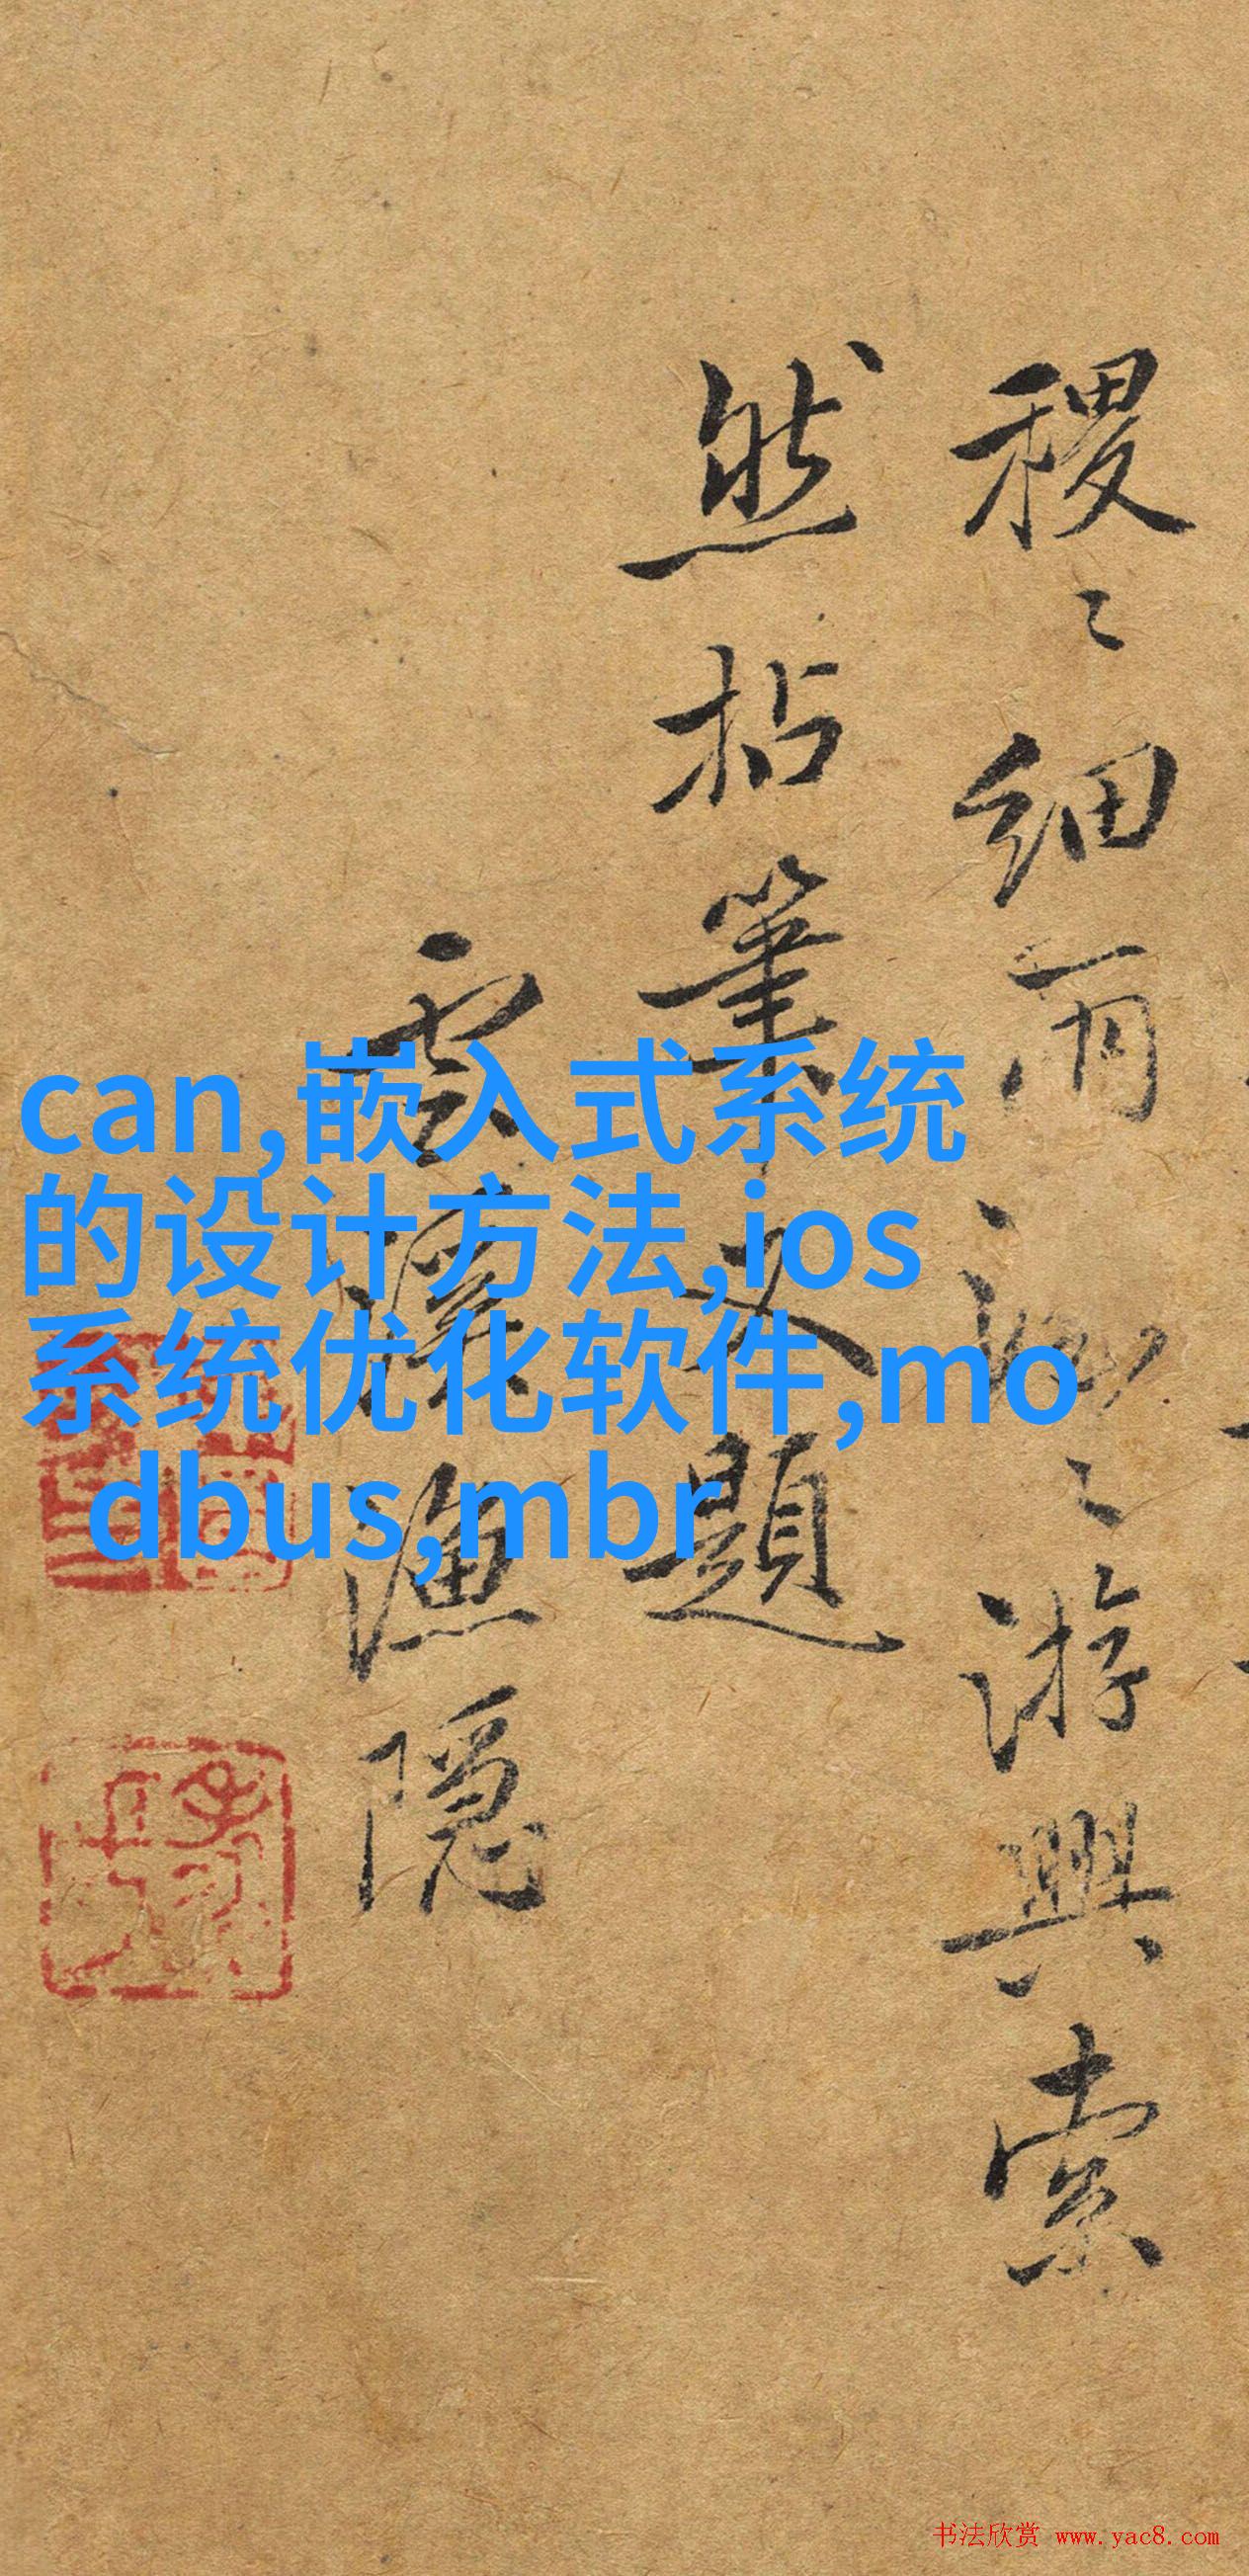 稷々細雨々游興索
然拈筆又題
雲溪漁隱
can,嵌入式系统
的设计方法,ios
系统优化软件,mo
dbus,mbr
书法欣赏 www.yac8.com